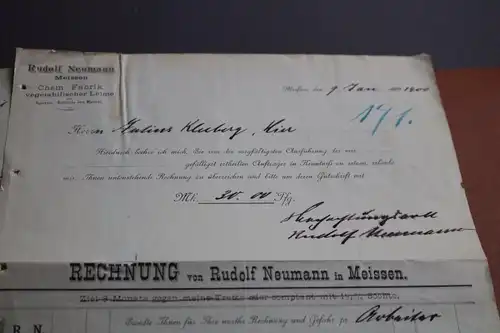 Rudolf Neumann
Meissen
Chem. Fabrik
vegetabilischer Leime
Meissen, den 9 Jan 1900
17/1.
Herrn Julius Kleeberg, Hier
Hierdurch beehre ich mich, Sie von der sorgfältigsten Ausführung des mir
gefälligst ertheilten Auftrages in Kenntniss zu setzen, erlaube
mir, Ihnen untenstehende Rechnung zu überreichen und bitte um deren Gutschrift mit
Mk. 30.00 Pfg.
Hochachtungsvoll
Rudolf Neumann
RECHNUNG von Rudolf Neumann in Meissen.
Ziel 3 Monate gegen meine Tratte oder comptant mit 1½% Sconto.
Sandte Ihnen für Ihre werthe Rechnung und Gefahr zu
R N